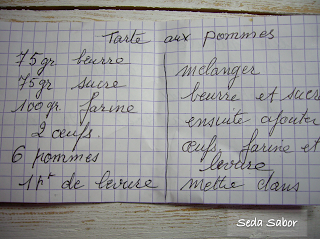 Tarte aux pommes
75gr beurre
75gr sucre
100gr farine
2 œufs.
6 pommes
1 pt de levure
mélanger
beurre et sucre
ensuite ajouter
œufs, farine et
levure
mettre dans
Seda Sabor